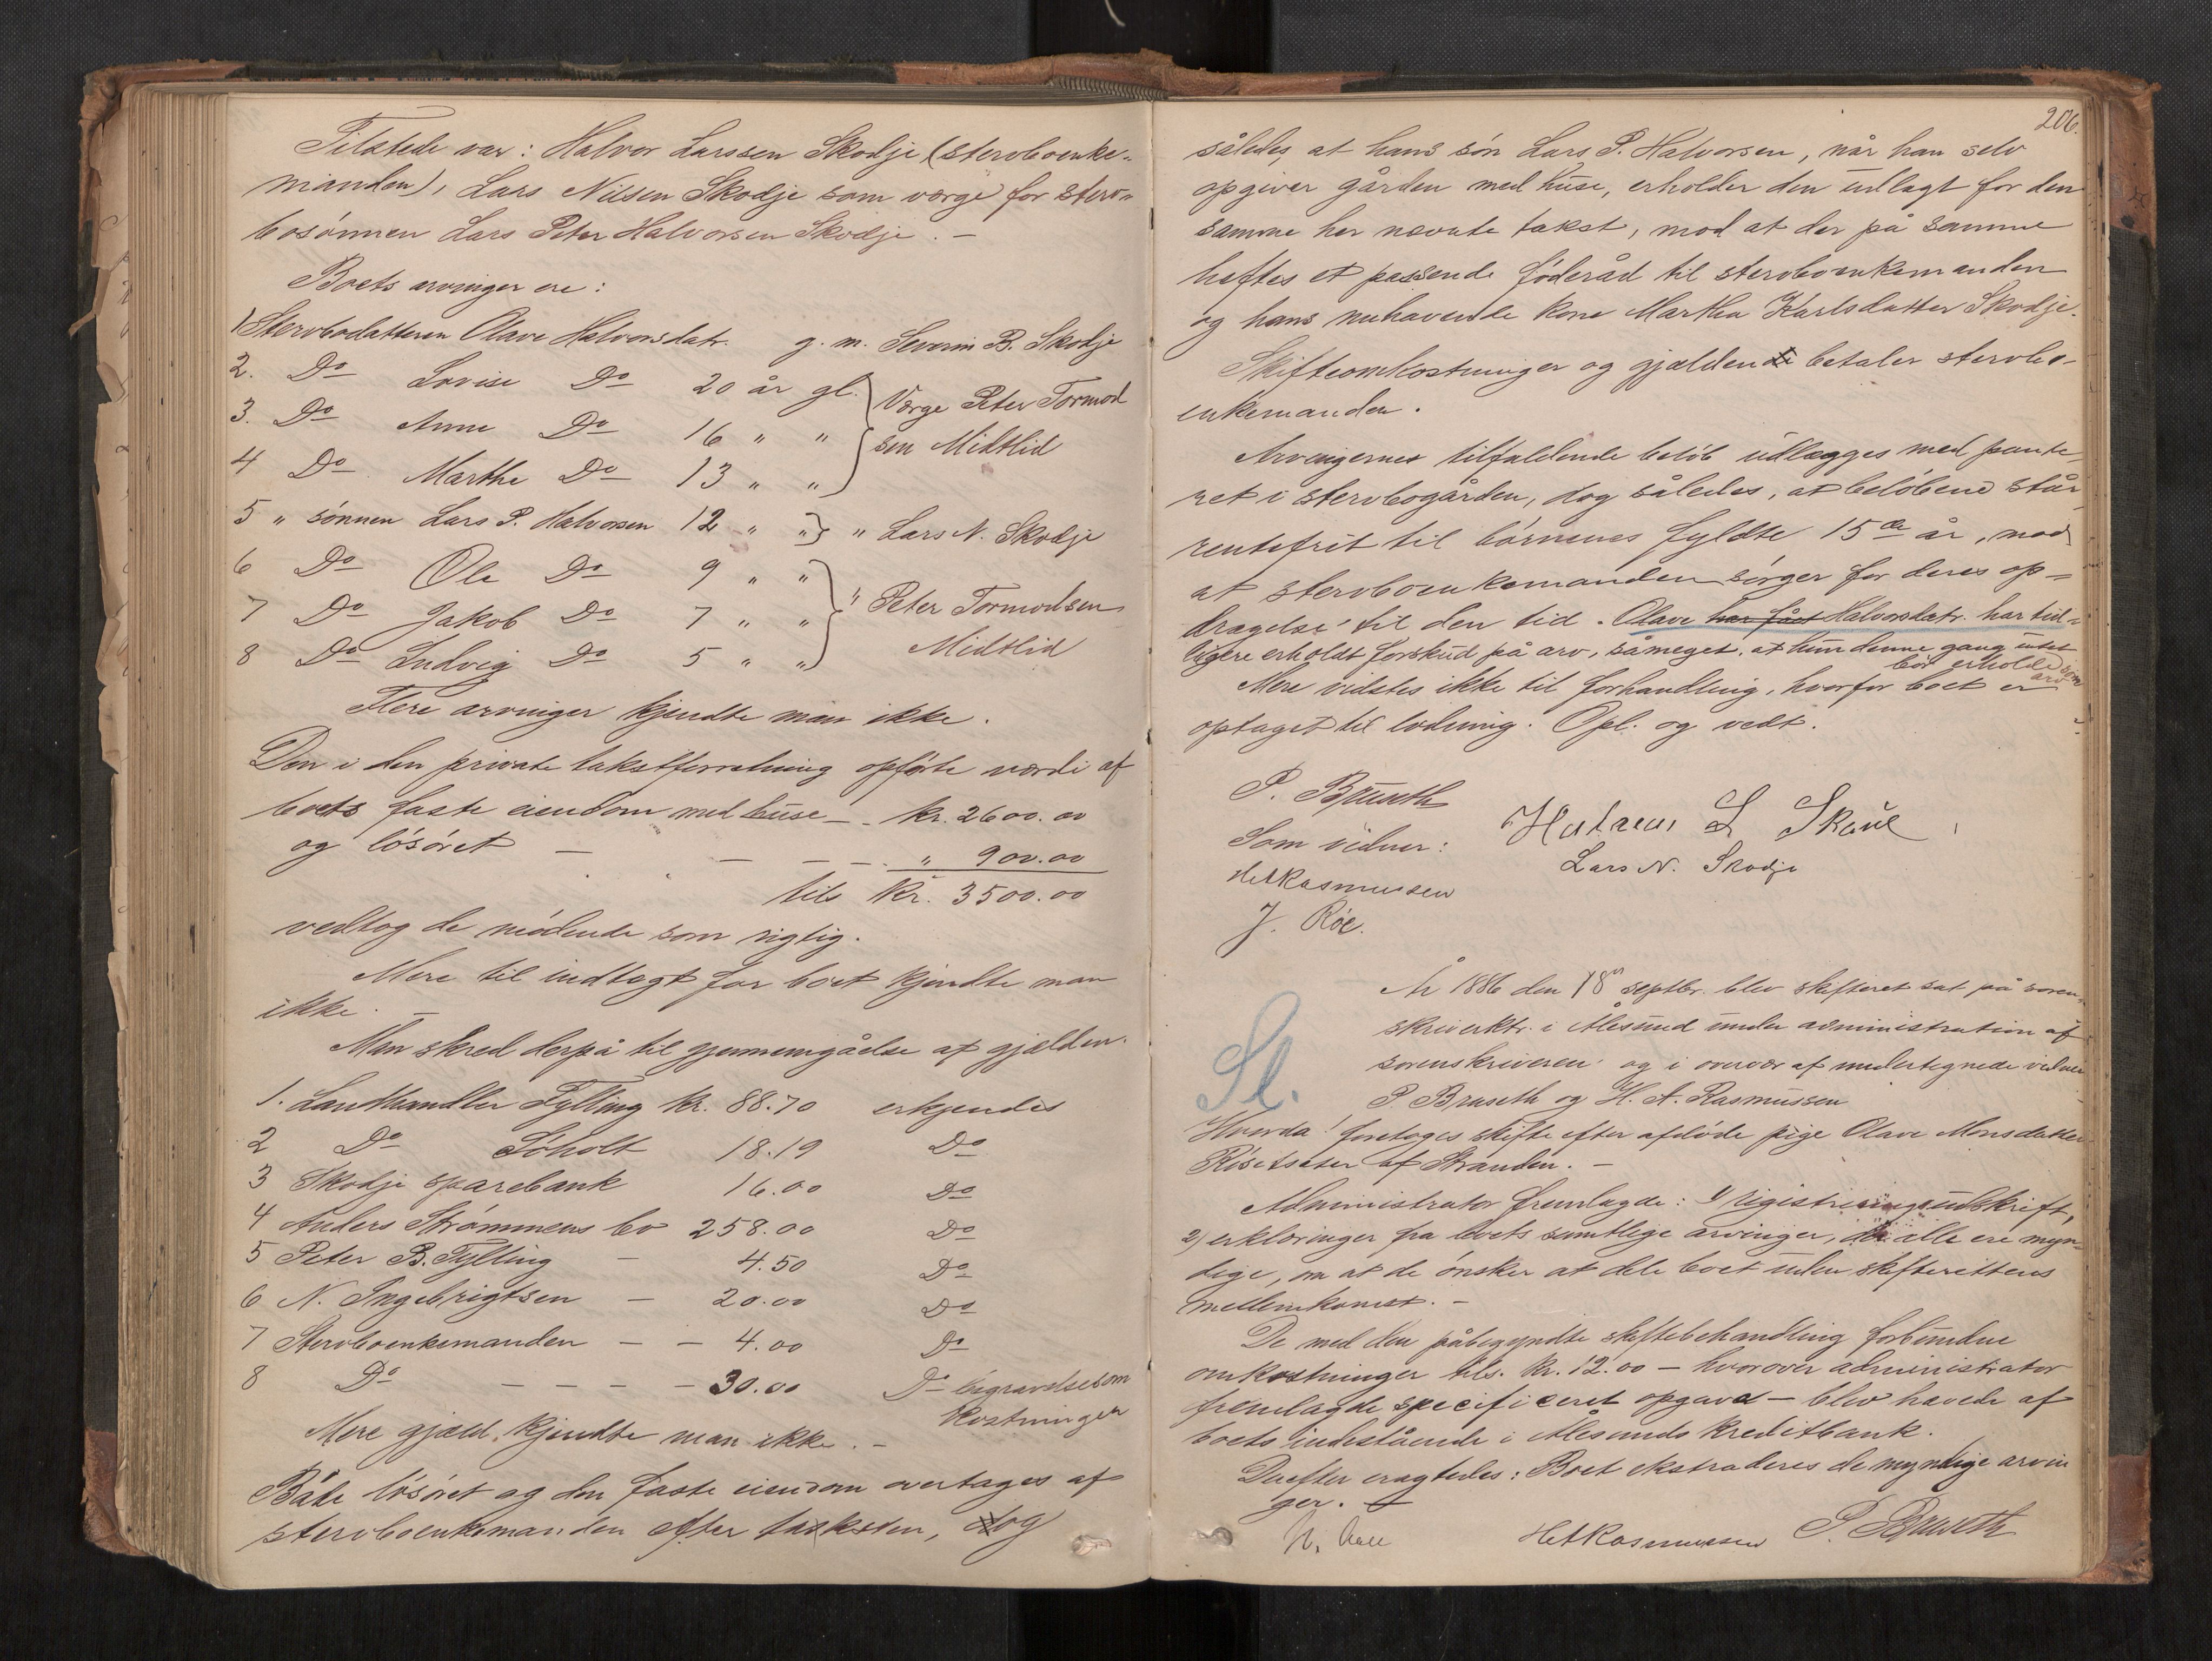 Tilstede var: Halvor Larssen Skodje (stervboenke-
manden), Lars Nilsen Skodje som værge for sterv-
bosønnen Lars Peter Halvorsen Skodje. —
Boets arvinger ere:
1 Stervbodatteren Olave Halvorsdatr. g. m. Severin B. Skodje
2. Do Lovise Do 20 år gl. } Værge Peter Tormod
3. Do Anne Do 16 " "
sen Midtlid
4 Do Marthe Do 13 " "
5 " sønnen Lars P. Halvorsen 12 " " } " Lars N. Skodje
6 Do Ole Do 9 " "
7 Do Jakob Do 7 " " } " Peter Tormodsen
8 Do Ludvig Do 5 " " Midtlid
Flere arvinger kjendte man ikke.
Den i den private takstforretning opførte værdi af
boets faste eiendom med huse — - kr. 2600.00
og løsøret — — — — " 900.00
tils kr. 3500.00
vedtog de mødende som rigtig.
Mere til indtægt for boet kjendte man
ikke. —
Man skred derpå til gjennemgåelse af gjælden.
1. Landhandler Fylling kr. 88.70 erkjendes
2 Do Søholt 18.19 Do
3 Skodje sparebank 16.00 Do
4 Anders Strømmens bo 258.00 Do
5 Peter B. Fylling — 4.50 Do
6 N. Ingebrigtsen — 20.00 Do
7 Stervboenkemanden — — 4.00 Do
8 Do — — — — 30.00 Do begravelsesom
kostninger
Mere gjæld kjendte man ikke. —
Både løsøret og den faste eiendom overtages af
stervboenkemanden efter taksten, dog
206.
således, at hans søn Lars P. Halvorsen, når han selv
opgiver gården med huse, erholder den udlagt for den
samme her nævnte takst, mod at der på samme
heftes et passende føderåd til stervboenkemanden
og hans nuhavende kone Marthea Karlsdatter Skodje.
Skifteomkostninger og gjælden betaler stervbo-
enkemanden.
Arvingernes tilfaldende beløb udlægges med pante-
ret i stervbogården, dog således, at beløbene står
rentefrit til børnenes fyldte 15de år, mod
at stervboenkemanden sørger for deres op-
dragelse til den tid. Olave har fået Halvorsdatr. har tid-
ligere erholdt forskud på arv, såmeget, at hun denne gang intet
bør erholde som
arv
Mere vidstes ikke til forhandling, hvorfor boet er
optaget til lodning. Opl. og vedt.
P. Bruseth
Som vidner: Halvor L Skåue
Lars N. Skodje
HARasmussen
J. Røe.
År 1886 den 18n septbr. blev skifteret sat på soren-
skriverktr. i Ålesund under administration af
sorenskriveren og i overvær af undertegnede vidner
P. Bruseth og H. A. Rasmussen
Sl.
Hvorda! foretoges skifte efter afdøde pige Olave Monsdatter
Røsetsæter af Stranden. —
Administrator fremlagde: 1) registreringsudskrift,
2) erklæringer fra boets samtlige arvinger, der alle ere myn-
dige, om at de ønsker at dele boet uden skifterettens
mellemkomst. —
De med den påbegyndte skiftebehandling forbundne
omkostninger tils. kr. 12.00 — hvorover administrator
fremlagde specificeret opgave — blev hævede af
boets indestående i Ålesunds kreditbank.
Derefter eragtedes: Boet ekstraderes de myndige arvin
ger.
HARasmussen P. Bruseth